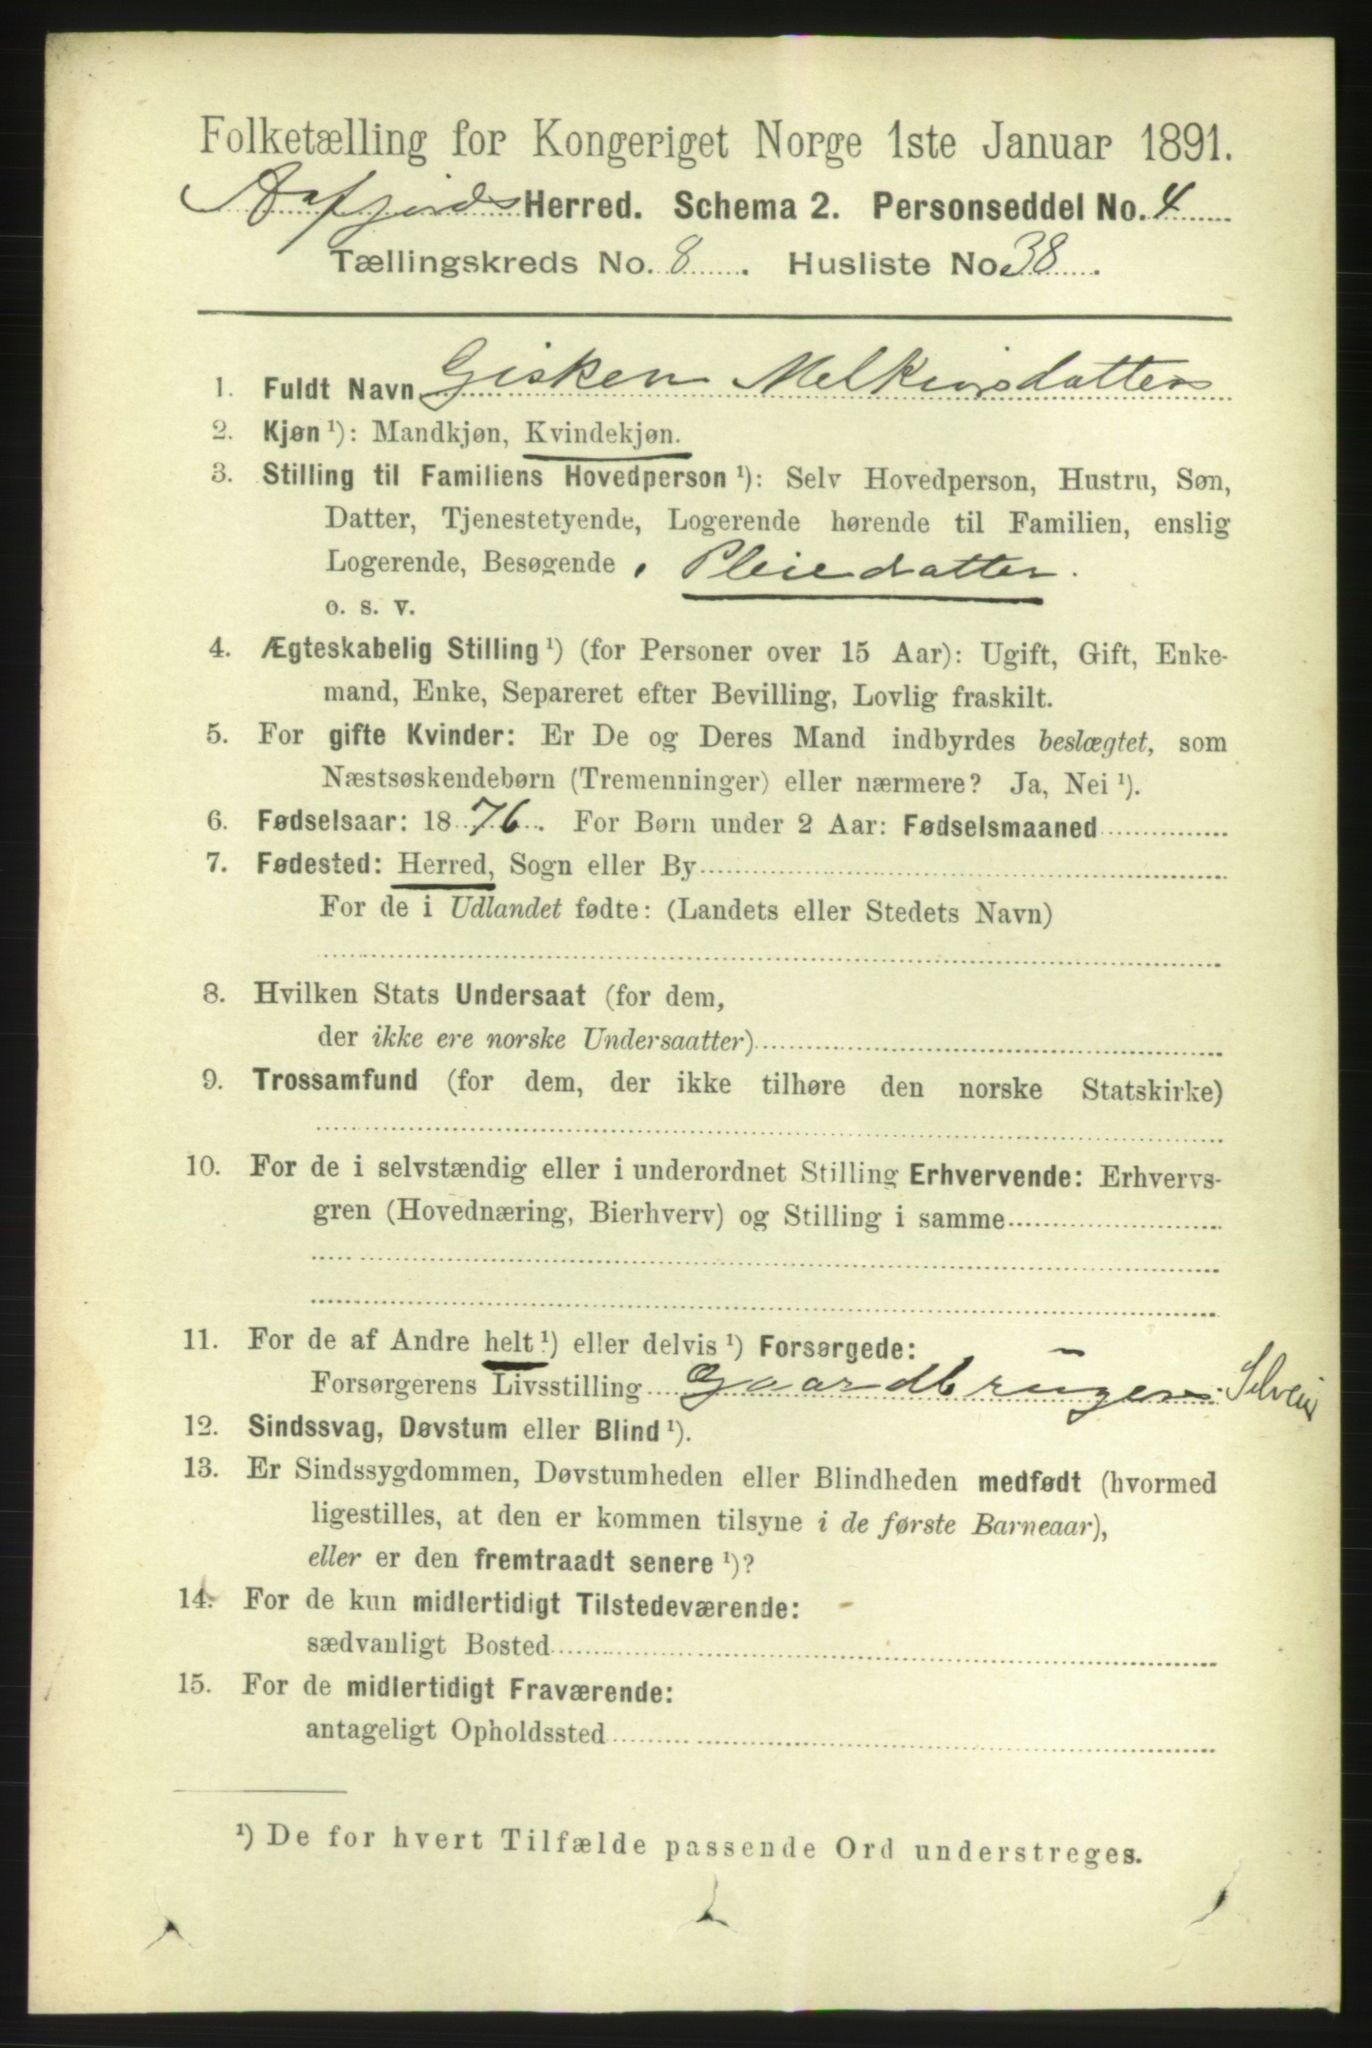 Folketælling for Kongeriget Norge 1ste Januar 1891.
Aafjords Herred. Schema 2. Personseddel No. 4
Tællingskreds No. 8. Husliste No. 38.
1. Fuldt Navn Gisken Melkiorsdatter
2. Kjøn ¹): Mandkjøn, Kvindekjøn.
3. Stilling til Familiens Hovedperson ¹): Selv Hovedperson, Hustru, Søn,
Datter, Tjenestetyende, Logerende hørende til Familien, enslig
Logerende, Besøgende, Pleiedatter.
o. s. v.
4. Ægteskabelig Stilling ¹) (for Personer over 15 Aar): Ugift, Gift, Enke-
mand, Enke, Separeret efter Bevilling, Lovlig fraskilt.
5. For gifte Kvinder: Er De og Deres Mand indbyrdes beslægtet, som
Næstsøskendebørn (Tremenninger) eller nærmere? Ja, Nei ¹).
6. Fødselsaar: 1876. For Børn under 2 Aar: Fødselsmaaned
7. Fødested: Herred, Sogn eller By
For de i Udlandet fødte: (Landets eller Stedets Navn)
8. Hvilken Stats Undersaat (for dem,
der ikke ere norske Undersaatter)
9. Trossamfund (for dem, der ikke tilhøre den norske Statskirke)
10. For de i selvstændig eller i underordnet Stilling Erhvervende: Erhvervs-
gren (Hovednæring, Bierhverv) og Stilling i samme
11. For de af Andre helt ¹) eller delvis ¹) Forsørgede:
Forsørgerens Livsstilling Gaardbruger Selveier
12. Sindssvag, Døvstum eller Blind ¹).
13. Er Sindssygdommen, Døvstumheden eller Blindheden medfødt (hvormed
ligestilles, at den er kommen tilsyne i de første Barneaar),
eller er den fremtraadt senere ¹)?
14. For de kun midlertidigt Tilstedeværende:
sædvanligt Bosted
15. For de midlertidigt Fraværende:
antageligt Opholdssted
¹) De for hvert Tilfælde passende Ord understreges.